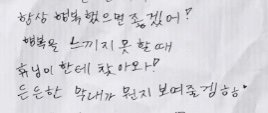 항상 행복했으면 좋겠어?
행복을 느끼지 못 할때
휴닝이 한테 찾아와!
든든한 막내가 뭔지 보여줄겜ㅎㅎ